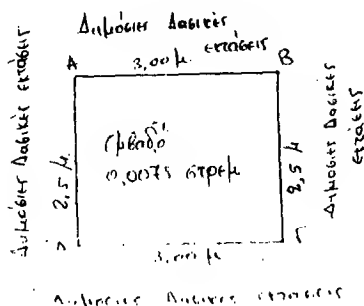 Δημόσιες Δασικές
εκτάσεις
Α 3,00 μ. Β
Δημόσιες Δασικές εκτάσεις
2,5 μ
Εμβαδό
0,0075 στρεμ
2,5 μ
Δημόσιες Δασικές
εκτάσεις
Δ 3,00 μ Γ
Δημόσιες Δασικές εκτάσεις